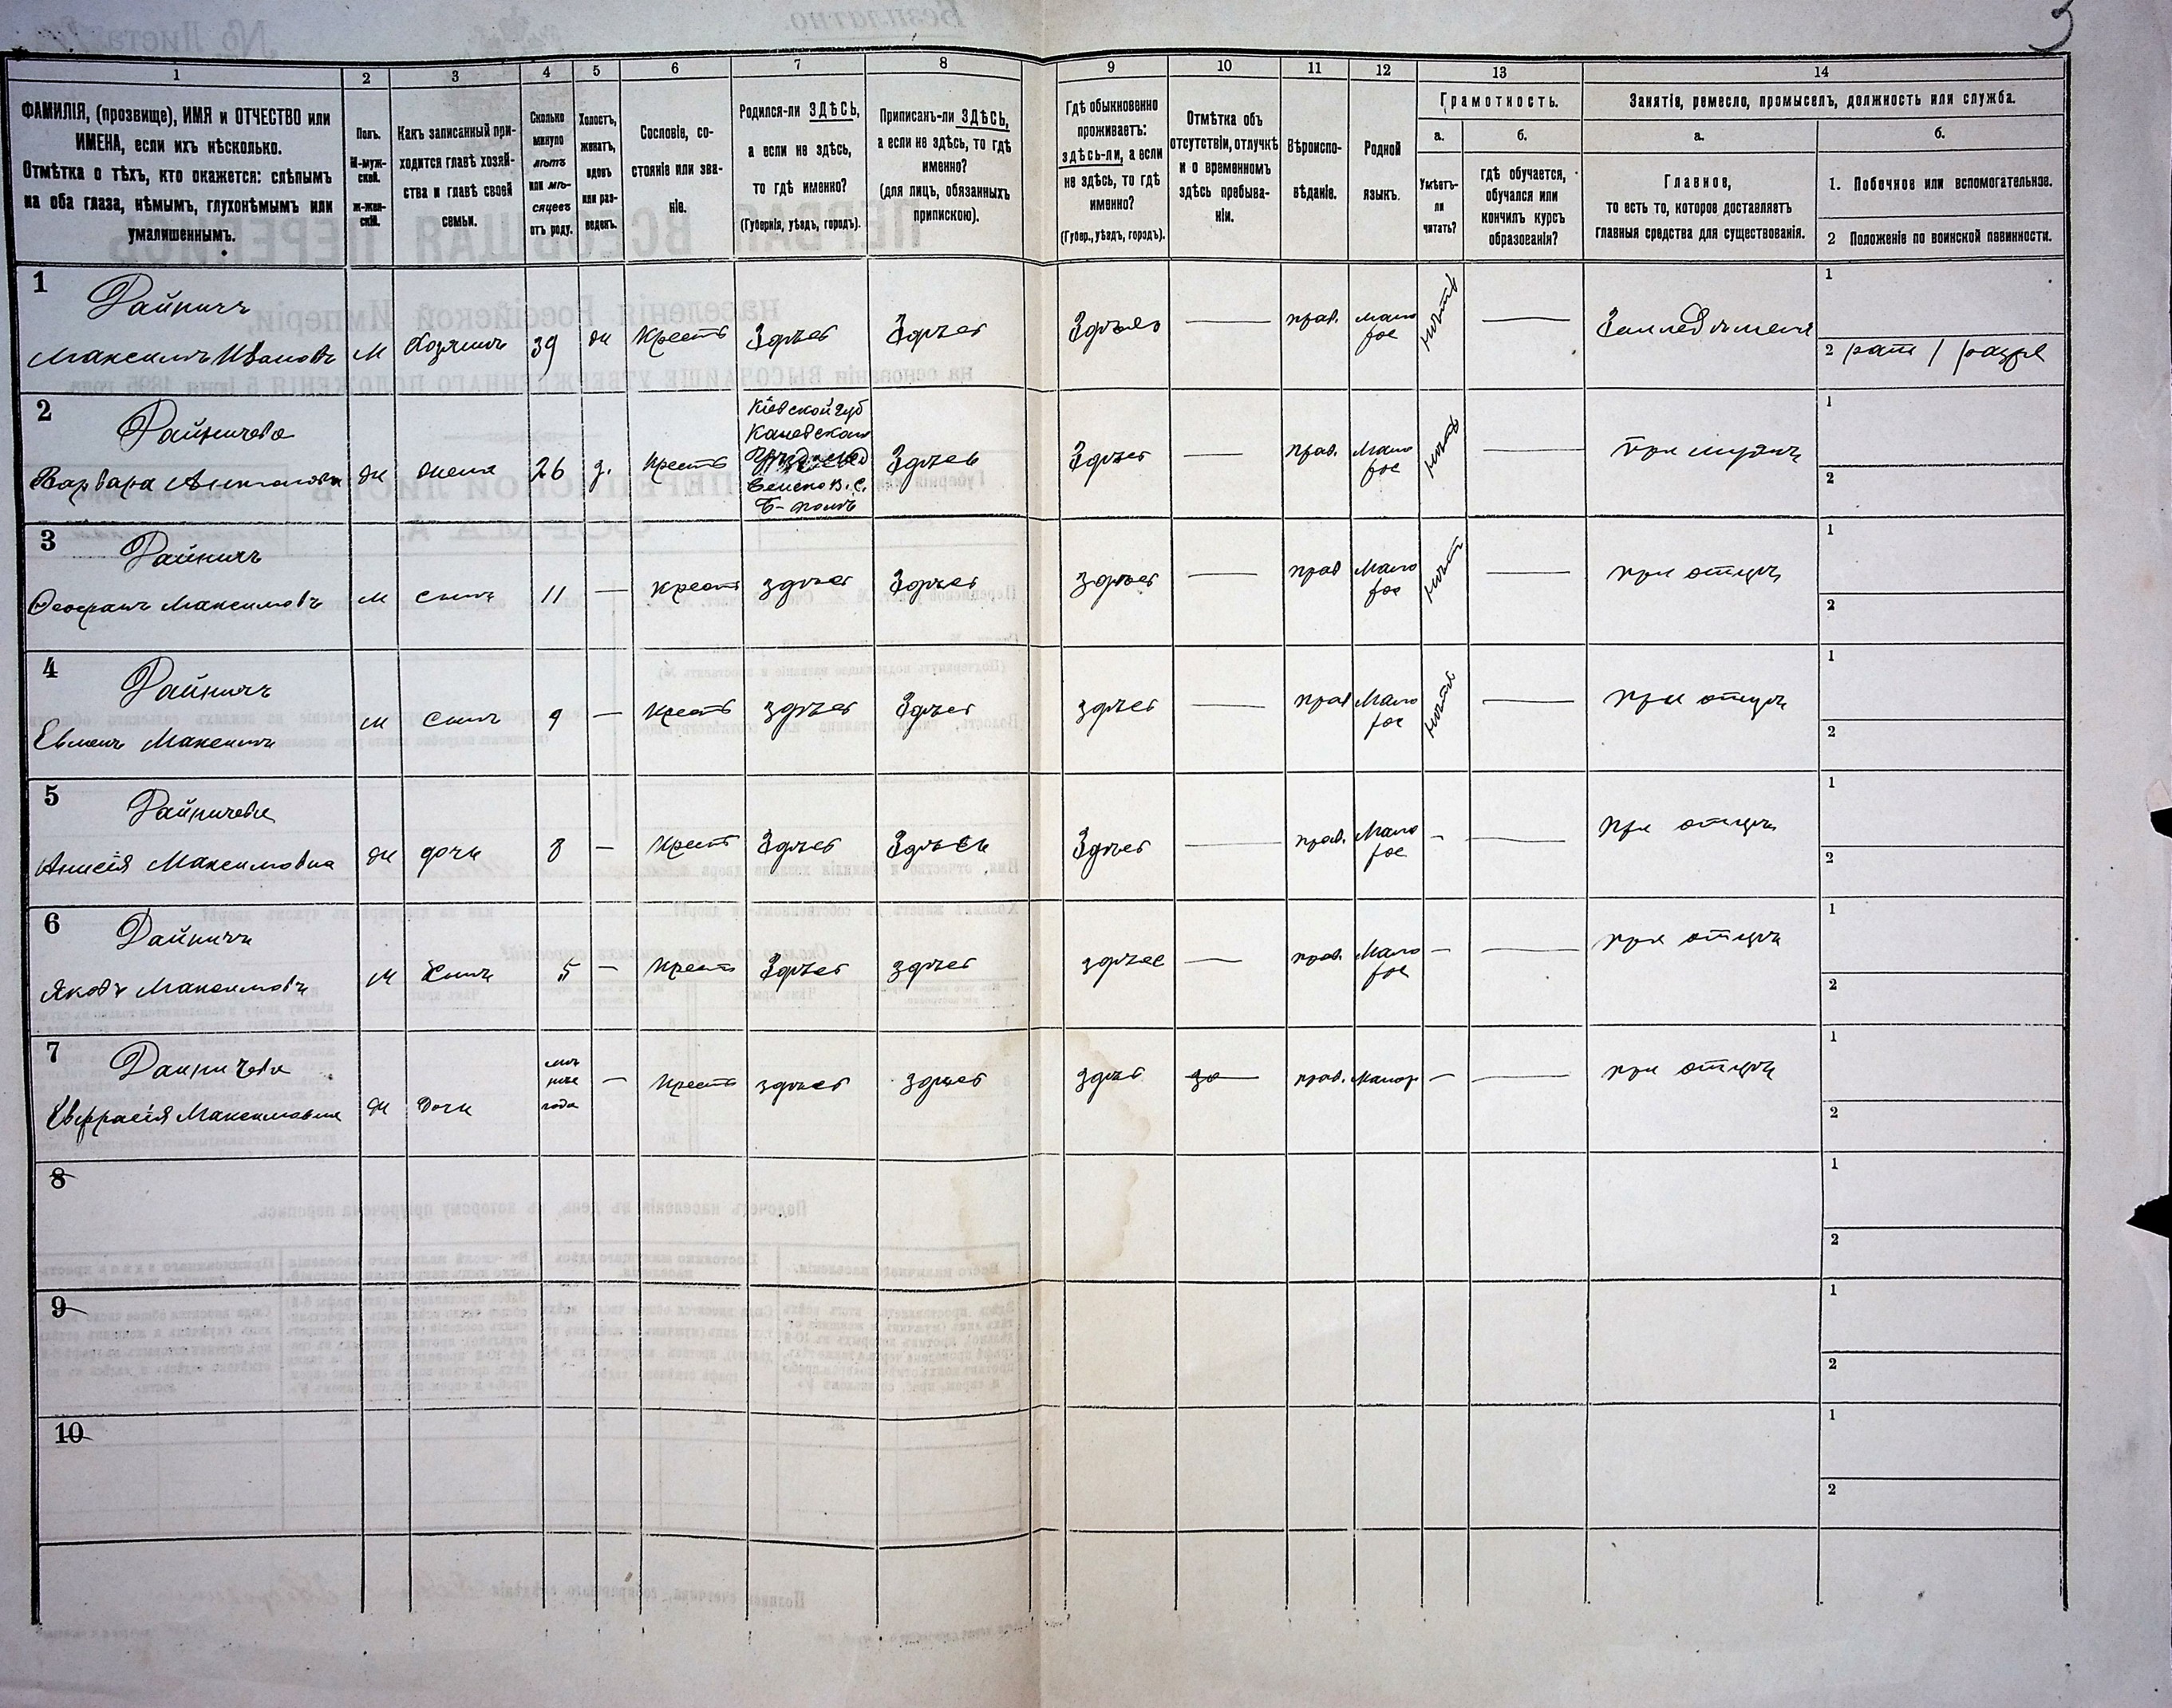 3
1 2 3 4 5 6 7 8 9 10 11 12 13 14
ФАМИЛІЯ, (прозвище), ИМЯ и ОТЧЕСТВО или
ИМЕНА, если ихъ нѣсколько.
Отмѣтка о тѣхъ, кто окажется: слѣпымъ
на оба глаза, нѣмымъ, глухонѣмымъ или
умалишеннымъ.
Полъ.
М-муж-
ской.
Ж-жен-
скій.
Какъ записанный при-
ходится главѣ хозяй-
ства и главѣ своей
семьи.
Сколько
минуло
лѣтъ
или мѣ-
сяцевъ
отъ роду.
Холостъ,
женатъ,
вдовъ
или раз-
веденъ.
Сословіе, со-
стояніе или зва-
ніе.
Родился-ли ЗДѢСЬ,
а если не здѣсь,
то гдѣ именно?
(Губернія, уѣздъ, городъ).
Приписанъ-ли ЗДѢСЬ,
а если не здѣсь, то гдѣ
именно?
(для лицъ, обязанныхъ
припискою).
Гдѣ обыкновенно
проживаетъ:
здѣсь-ли, а если
не здѣсь, то гдѣ
именно?
(Губер., уѣздъ, городъ).
Отмѣтка объ
отсутствіи, отлучкѣ
и о временномъ
здѣсь пребыва-
ніи.
Вѣроиспо-
вѣданіе.
Родной
языкъ.
Грамотность.
а.
Умѣетъ-
ли
читать?
б.
гдѣ обучается,
обучался или
кончилъ курсъ
образованія?
Занятіе, ремесло, промыселъ, должность или служба.
а.
Главное,
то есть то, которое доставляетъ
главныя средства для существованія.
б.
1. Побочное или вспомогательное.
2 Положеніе по воинской повинности.
1
Райничъ
Максимъ Ивановъ м Хозяинъ 39 ж Крестъ Здѣсь Здѣсь Здѣсь — прав. мало рос нѣтъ — Земледѣліе
1
2 рат
2
Райничева
Варвара Антонова ж жена 26 з. Крестъ
Кіевской губ
Каневскаго
Здѣсь Здѣсь — прав. Мало рос нѣтъ — при мужѣ
1
2
3
Райничъ
Феофанъ Максимовъ м сынъ 11 — Крестъ здѣсь Здѣсь здѣсь — прав Мало рос нѣтъ — при отцѣ
1
2
4
Райничъ
Евменъ Максимъ м Сынъ 9 — Крестъ здѣсь Здѣсь здѣсь — прав Мало рос нѣтъ — при отцѣ
1
2
5
Райничева
Анисія Максимовна ж дочь 8 — Крестъ Здѣсь Здѣсь Здѣсь — прав. Мало рос — — при отцѣ
1
2
6
Райничъ
Яковъ Максимовъ м Сынъ 5 — Крестъ Здѣсь здѣсь здѣсь — прав. Мало рос — — при отцѣ
1
2
7
Райничева
Евфрасія Максимовна ж Дочь
года — Крестъ здѣсь здѣсь здѣсь прав. Малор — — при отцѣ
1
2
8
1
2
9
1
2
10
1
2